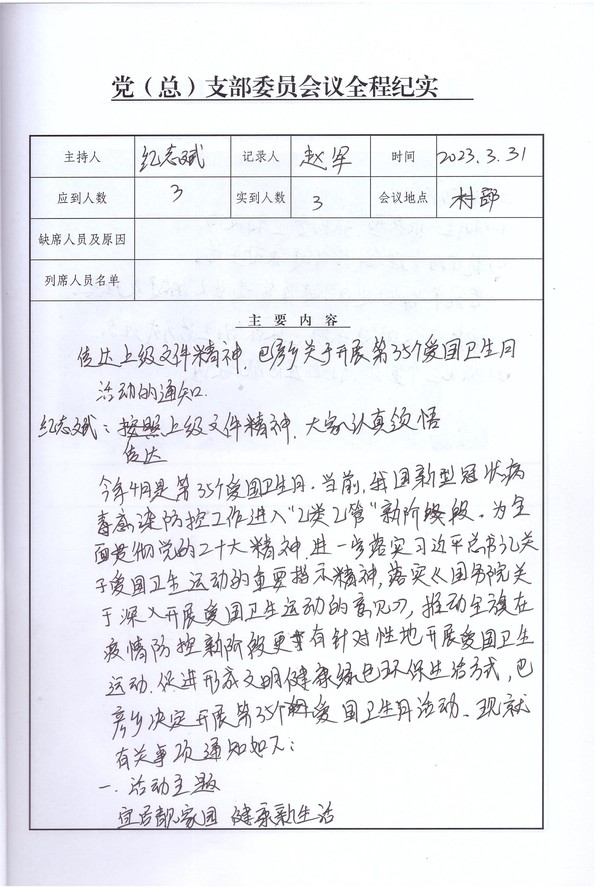 党（总）支部委员会议全程纪实
主持人 纪志斌 记录人 赵军 时间 2023.3.31
应到人数 3 实到人数 3 会议地点 村部
缺席人员及原因
列席人员名单
主要内容
传达上级文件精神，巴彦乡关于开展第35个爱国卫生月
活动的通知.
纪志斌：按照上级文件精神，大家认真领悟
传达
今年4月是第35个爱国卫生月。当前，我国新型冠状病
毒感染防控工作进入"乙类乙管"新阶段。为全
面贯彻党的二十大精神，进一步落实习近平总书记关
于爱国卫生运动的重要指示精神，落实《国务院关
于深入开展爱国卫生运动的意见》，推动全旗在
疫情防控新阶段更有针对性地开展爱国卫生
运动.促进形成文明健康绿色环保生活方式，巴
彦乡决定开展第35个爱国卫生月活动、现就
有关事项通知如下：
一.活动主题
宜居靓家园 健康新生活